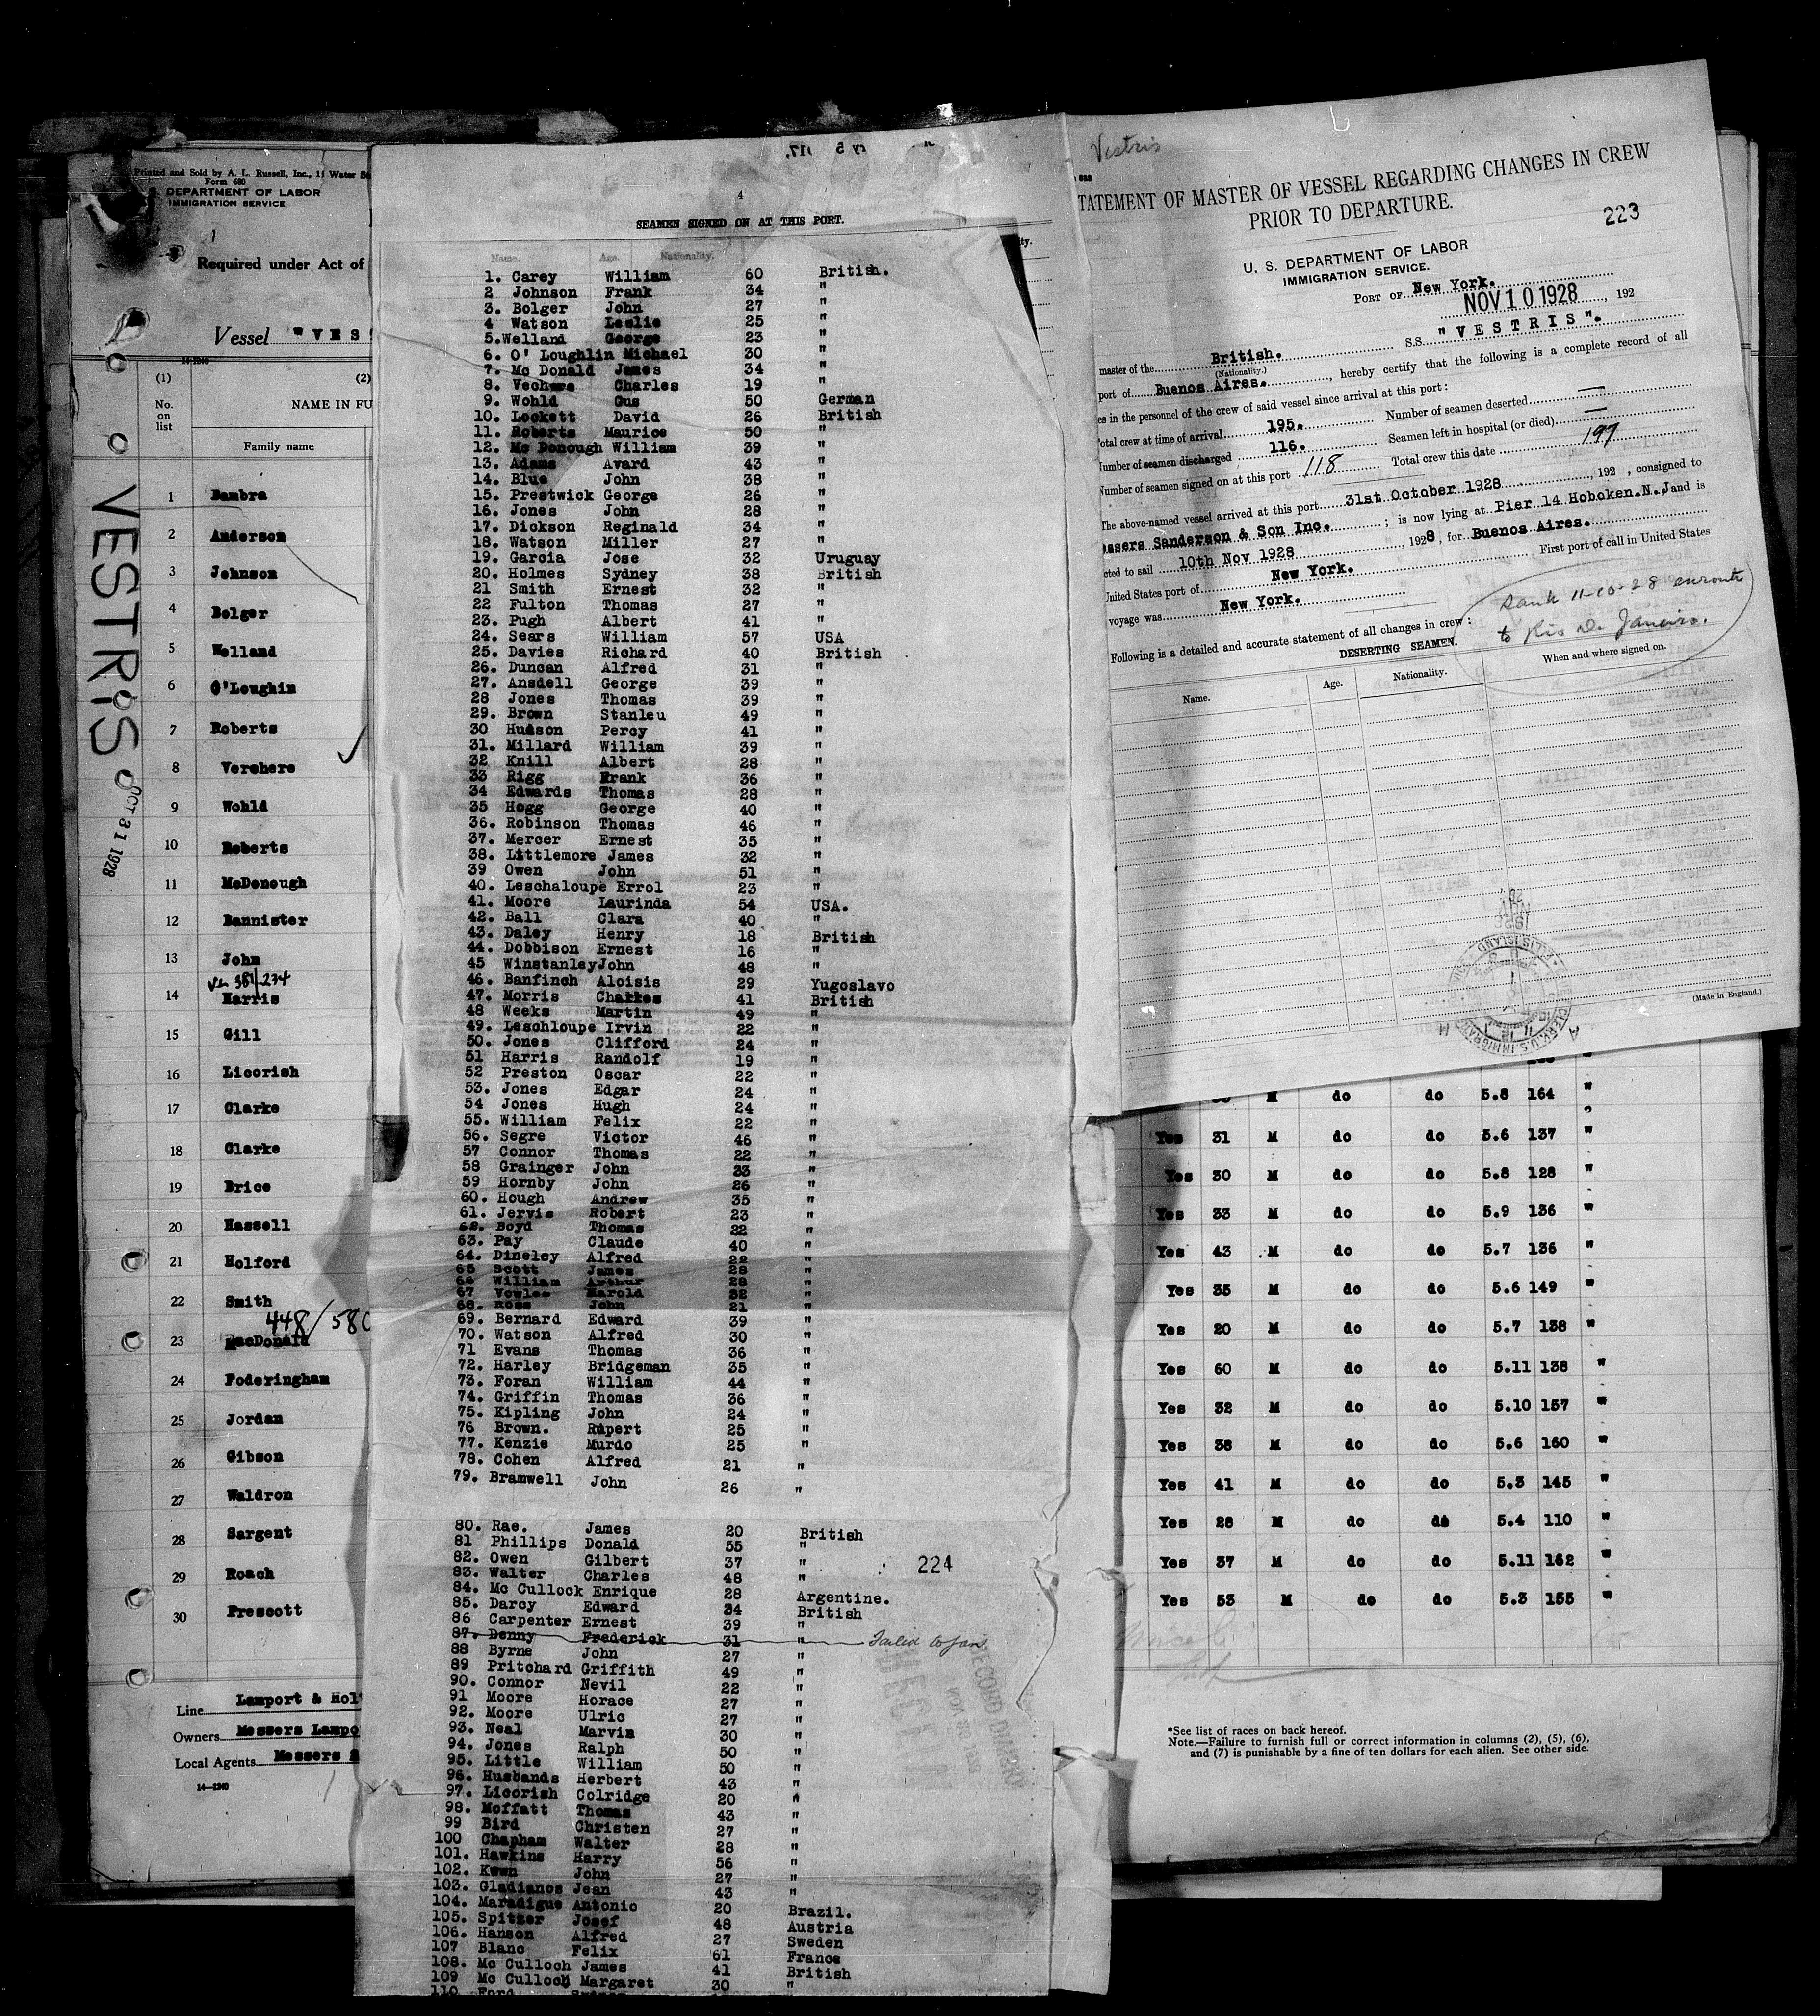 Printed and Sold by A. L. Russell, Inc., 11 Water
Form 680
DEPARTMENT OF LABOR
IMMIGRATION SERVICE
Required under Act of
Vessel "VES
14-1240
(1) (2)
No. on list
NAME IN FU
Family name
VESTRIS
OCT 31 1928
1 Bambra
2 Anderson
3 Johnson
4 Bolger
5 Welland
6 O'Loughin
7 Roberts
8 Verchere
9 Wohld
10 Roberts
11 McDonough
12 Bannister
13 John
14 Harris
15 Gill
16 Licorish
17 Clarke
18 Clarke
19 Brice
20 Hassell
21 Holford
22 Smith
448/580
23 MacDonald
24 Foderingham
25 Jordan
26 Gibson
27 Waldron
28 Sargent
29 Roach
30 Prescott
Line Lamport & Hol
Owners Messers Lampo
Local Agents Messers
14-1240
4
SEAMEN SIGNED ON AT THIS PORT.
Name. Age. Nationality.
1. Carey William 60 British.
2 Johnson Frank 34 "
3. Bolger John 27 "
4 Watson Leslie 25 "
5. Welland George 23 "
6. O' Loughlin Michael 30 "
7. Mc Donald James 34 "
8. Vechere Charles 19 "
9. Wohld Gus 50 German
10. Lockett David 26 British
11. Roberts Maurice 50 "
12. Mc Donough William 39 "
13. Adams Avard 43 "
14. Blue John 38 "
15. Prestwick George 26 "
16. Jones John 28 "
17. Dickson Reginald 34 "
18. Watson Miller 27 "
19. Garcia Jose 32 Uruguay
20. Holmes Sydney 38 British
21 Smith Ernest 32 "
22 Fulton Thomas 27 "
23. Pugh Albert 41 "
24. Sears William 57 USA
25. Davies Richard 40 British
26. Duncan Alfred 31 "
27. Ansdell George 39 "
28 Jones Thomas 39 "
29. Brown Stanleu 49 "
30 Hudson Percy 41 "
31. Millard William 39 "
32 Knill Albert 28 "
33 Rigg Frank 36 "
34 Edwards Thomas 28 "
35 Hogg George 40 "
36. Robinson Thomas 46 "
37. Mercer Ernest 35 "
38. Littlemore James 32 "
39 Owen John 51 "
40. Leschaloupe Errol 23 "
41. Moore Laurinda 54 USA.
42. Ball Clara 40 "
43. Daley Henry 18 British
44. Dobbison Ernest 16 "
45 Winstanley John 48 "
46. Banfinch Aloisis 29 Yugoslavo
47. Morris Charles 41 British
48 Weeks Martin 49 "
49. Leschloupe Irvin 22 "
50. Jones Clifford 24 "
51 Harris Randolf 19 "
52 Preston Oscar 22 "
53. Jones Edgar 24 "
54 Jones Hugh 24 "
55. William Felix 22 "
56. Segre Victor 46 "
57 Connor Thomas 22 "
58 Grainger John 33 "
59 Hornby John 26 "
60. Hough Andrew 35 "
61. Jervis Robert 23 "
62. Boyd Thomas 22 "
63. Pay Claude 40 "
64. Dineley Alfred 22 "
65 Scott James 28 "
66 William Arthur 28 "
67 Vowles Harold 32 "
68. Ross John 21 "
69. Bernard Edward 39 "
70. Watson Alfred 30 "
71 Evans Thomas 36 "
72. Harley Bridgeman 35 "
73. Foran William 44 "
74. Griffin Thomas 36 "
75. Kipling John 24 "
76 Brown. Rupert 25 "
77. Kenzie Murdo 25 "
78. Cohen Alfred 21 "
79. Bramwell John 26 "
80. Rae. James 20 British
81 Phillips Donald 55 "
82. Owen Gilbert 37 "
224
83. Walter Charles 48 "
84. Mc Cullock Enrique 28 Argentine.
85. Darcy Edward 34 British
86 Carpenter Ernest 39 "
87. Denny Frederick 31 " Failed to join
88 Byrne John 27 "
89 Pritchard Griffith 49 "
90. Connor Nevil 22 "
91 Moore Horace 27 "
92. Moore Ulric 27 "
93. Neal Marvin 30 "
94. Jones Ralph 50 "
95. Little William 50 "
96. Husbands Herbert 43 "
97. Licorish Colridge 20 "
98. Moffatt Thomas 43 "
99 Bird Christen 27 "
100 Chapham Walter 28 "
101. Hawkins Harry 56 "
102. John 27 "
103. Gladianos Jean 43 "
104. Maradigue Antonio 20 Brazil.
105. Spitzer Josef 48 Austria
106. Hanson Alfred 27 Sweden
107 Blanc Felix 61 France
108. Mc Culloch James 41 British
109 Mc Culloch Margaret 30 "
110 Ford
Vestris
TATEMENT OF MASTER OF VESSEL REGARDING CHANGES IN CREW
PRIOR TO DEPARTURE.
223
U. S. DEPARTMENT OF LABOR
IMMIGRATION SERVICE.
PORT OF New York.
NOV 10 1928, 192
master of the British. S.S. "VESTRIS".
(Nationality.)
port of Buenos Aires., hereby certify that the following is a complete record of all
es in the personnel of the crew of said vessel since arrival at this port:
otal crew at time of arrival 195. Number of seamen deserted —
umber of seamen discharged 116. Seamen left in hospital (or died) —
Number of seamen signed on at this port 118 Total crew this date 197
The above-named vessel arrived at this port 31st October 1928, 192 , consigned to
essers Sanderson & Son Inc. ; is now lying at Pier 14 Hoboken.N.J and is
cted to sail 10th Nov 1928, 1928, for Buenos Aires.
United States port of New York. First port of call in United States
voyage was New York.
Sank 11-10-28 enroute to Rio De Janeiro.
Following is a detailed and accurate statement of all changes in crew:
DESERTING SEAMEN.
Name. Age. Nationality. When and where signed on.
(Made in England.)
M do do 5.8 164 "
Yes 31 M do do 5.6 137 "
Yes 30 M do do 5.8 128 "
Yes 33 M do do 5.9 136 "
Yes 43 M do do 5.7 136 "
Yes 35 M do do 5.6 149 "
Yes 20 M do do 5.7 138 "
Yes 60 M do do 5.11 138 "
Yes 32 M do do 5.10 157 "
Yes 38 M do do 5.6 160 "
Yes 41 M do do 5.3 145 "
Yes 28 M do do 5.4 110 "
Yes 37 M do do 5.11 162 "
Yes 53 M do do 5.3 155 "
*See list of races on back hereof.
Note.—Failure to furnish full or correct information in columns (2), (5), (6),
and (7) is punishable by a fine of ten dollars for each alien. See other side.